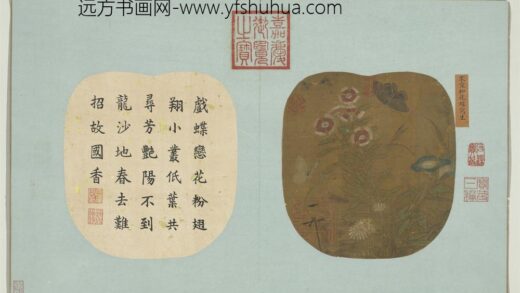 远方书画网-www.yfshuhua.com
嘉慶御覽之寶
戲蝶戀花粉翅
翔小叢低葉共
尋芳艷陽不到
龍沙地春去難
招故國香